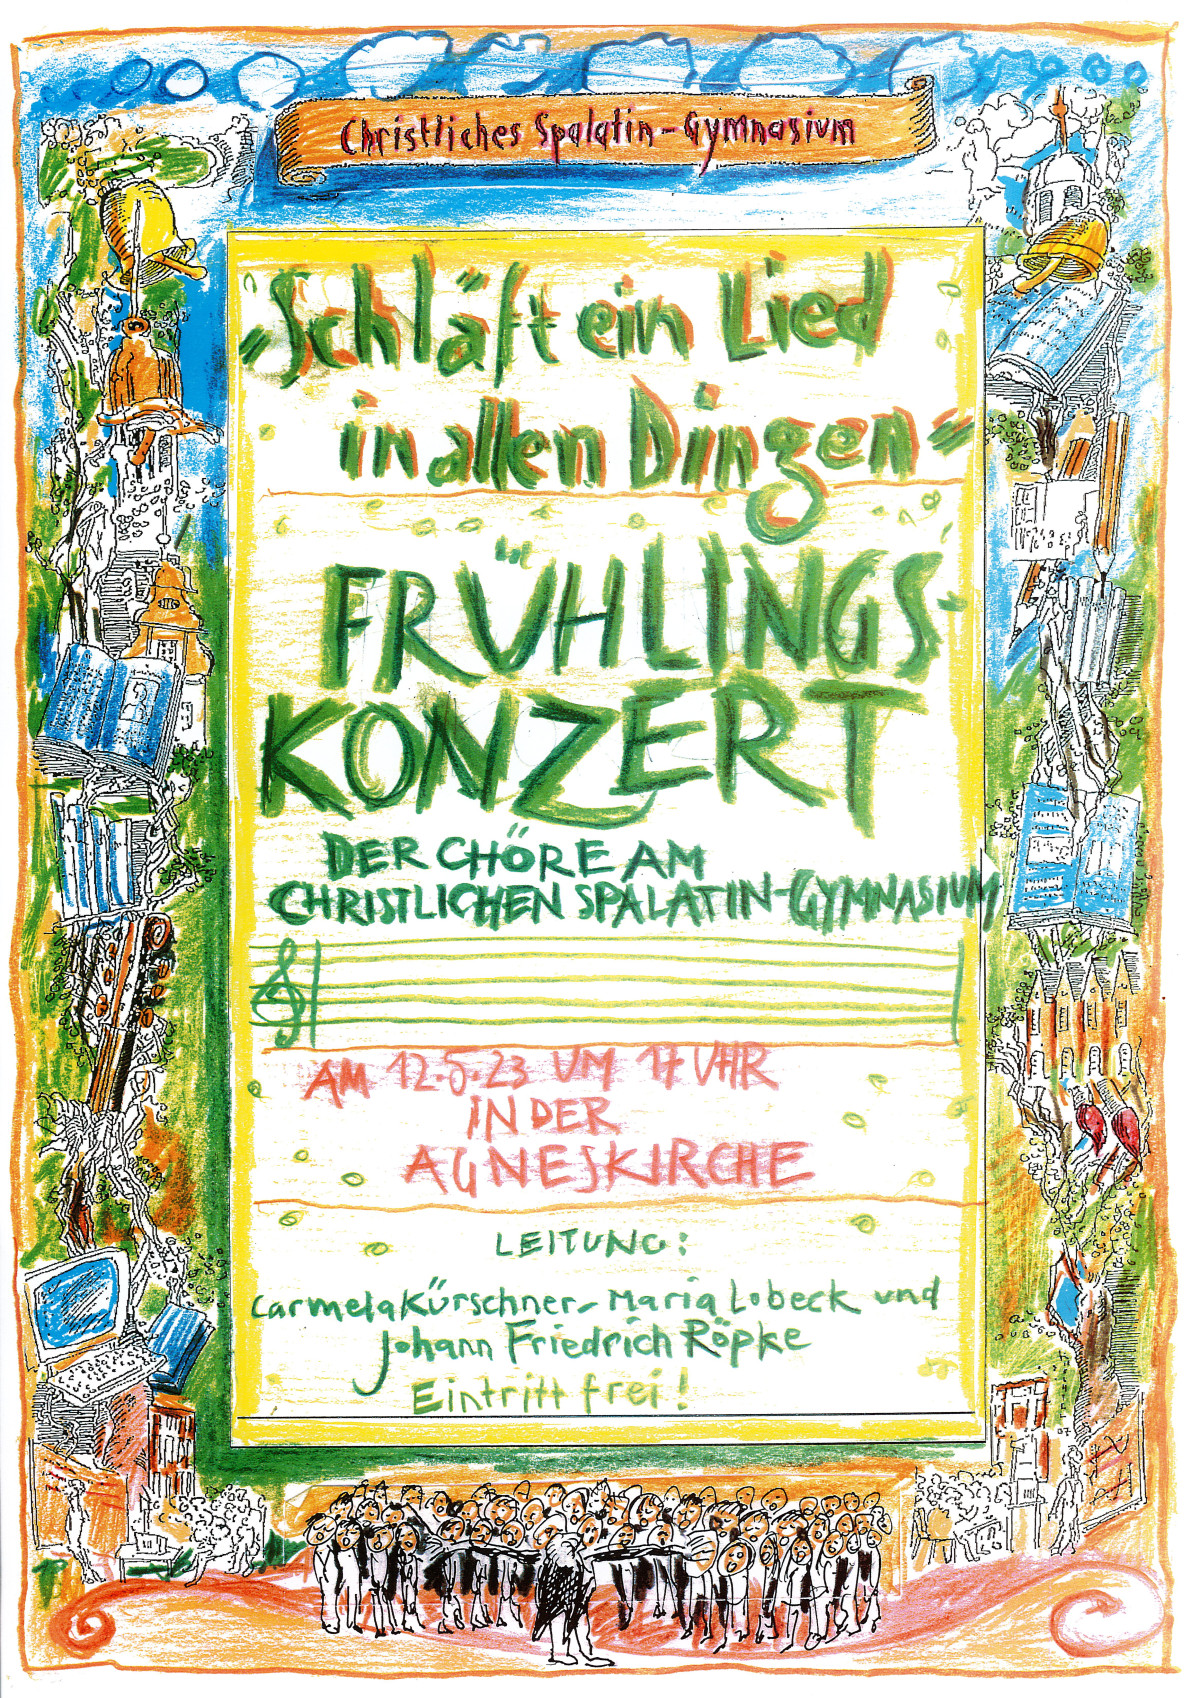 Christliches Spalatin-Gymnasium
"Schläft ein Lied
in allen Dingen"
FRÜHLINGS-
KONZERT
DER CHÖRE AM
CHRISTLICHEN SPALATIN-GYMNASIUM
AM 12.5.23 UM 17 UHR
IN DER
AGNESKIRCHE
LEITUNG:
Carmela Kürschner, Maria Lobeck und
Johann Friedrich Röpke
Eintritt frei!